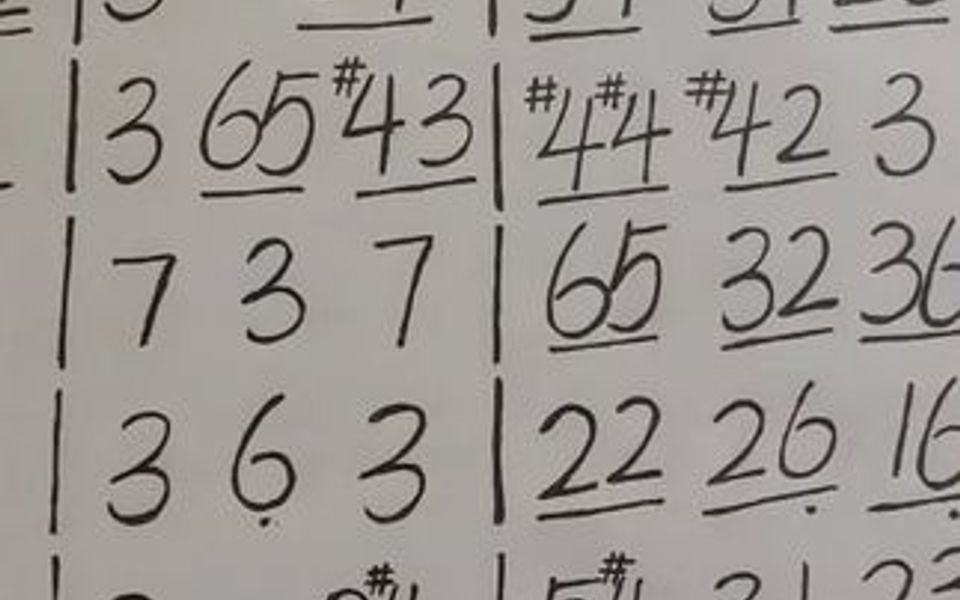 | 3 65 #43 | #4#4 #42 3
| 7 3 7 | 65 32 36
| 3 6̣ 3 | 22 26̣ 16̣